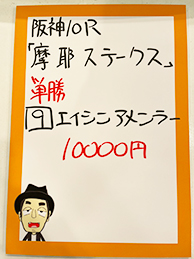 阪神10R
「摩耶ステークス」
単勝
9エイシンアメンラー
10000円